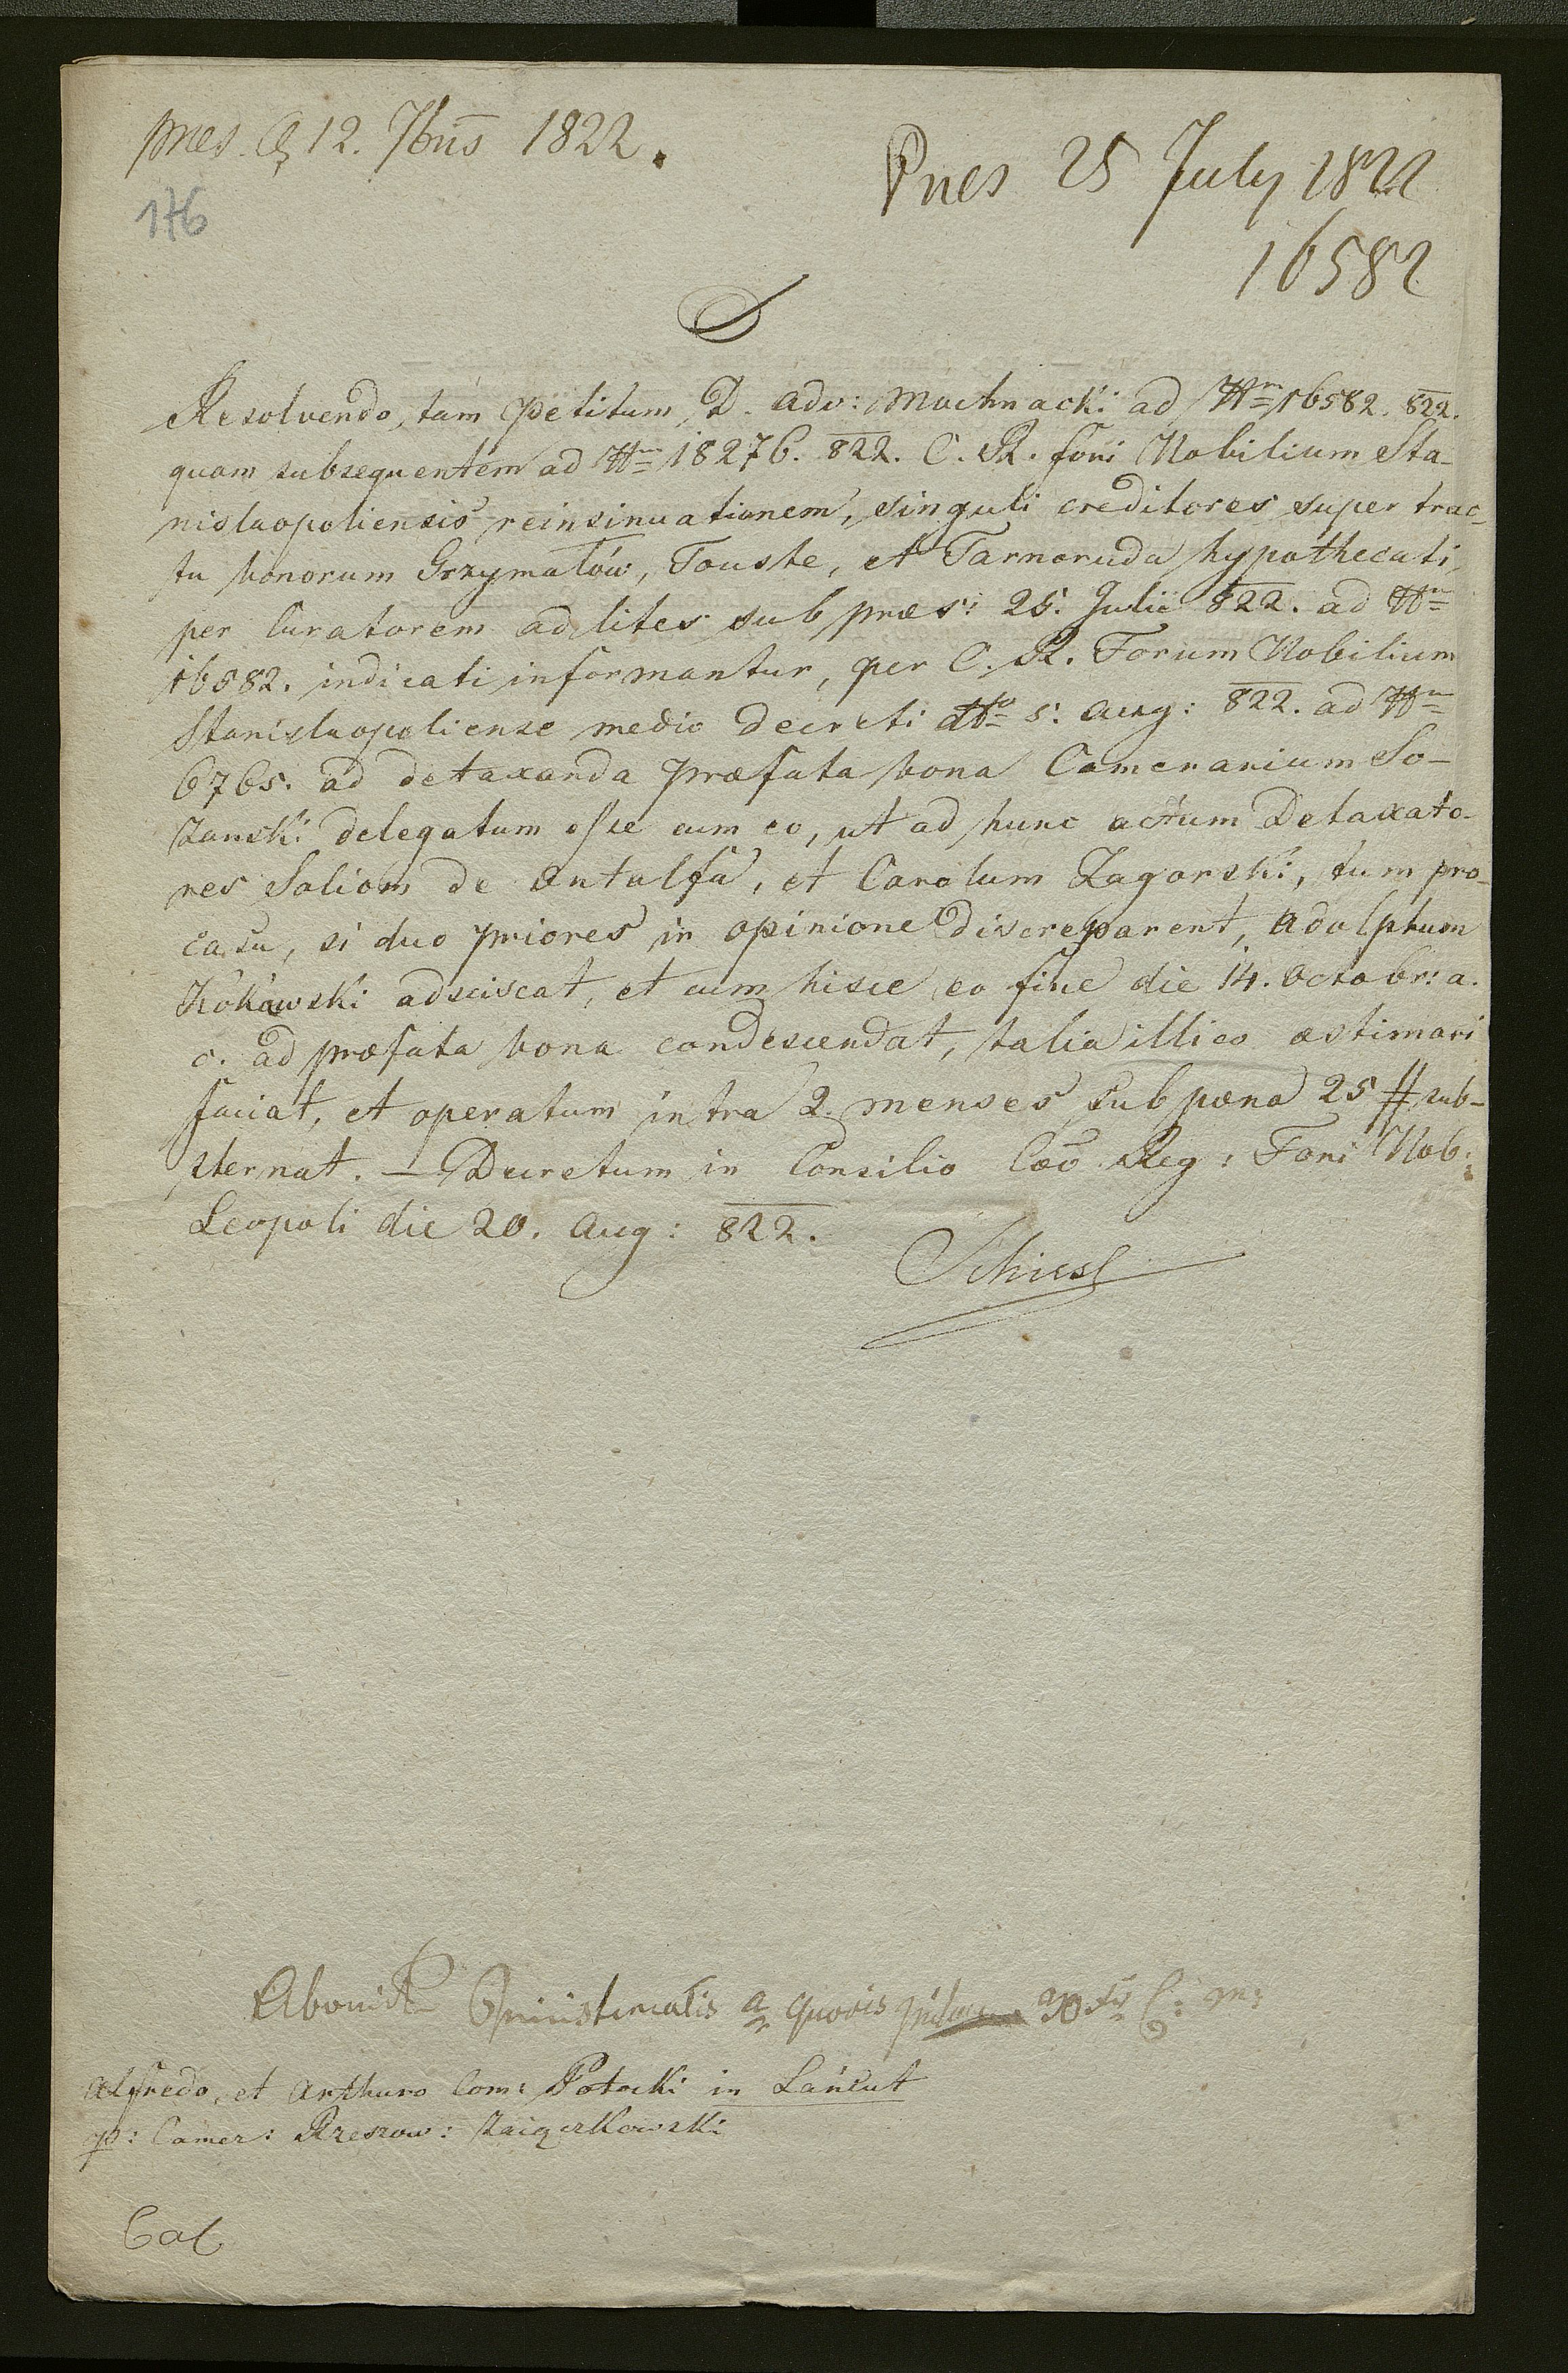 præs. 12. 7bris 1822.
Præs 25 July 1822
16582
176
D
Resolvendo, tam petitum D. adv: Mochnacki ad Nrm 16582. 822.
quam subsequentem ad Nrm 18276. 822. C. R. fori Nobilium Sta-
nislaopoliensis reinsinuationem, singuli creditores super trac-
tu bonorum Grzymałów, Touste, et Tarnoruda hypothecati,
per Curatorem ad lites sub præs: 25. Julii 822. ad Nrm
16582. indicati informantur, per C. R. Forum Nobilium
Stanislaopoliense medio decreti dtto 5. aug: 822. ad Nrm
6765. ad detaxanda præfata bona Camerarium So-
zanski delegatum esse cum eo, ut ad hunc actum Detaxato-
res Saliom de Antalfa, et Carolum Zagorski, tum pro
casu, si duo priores in opinione discreparent, Adolphum
Kokowski adsciscat, et cum hisce eo fine die 14. Octobr: a.
c. ad præfata bona condescendat, talia illico æstimari
faciat, et operatum intra 2. menses sub pœna 25 # sub-
sternat. — Decretum in Consilio Cæo Reg: Fori Nob:
Leopoli die 20. Aug: 822.
Schiesl
Ministerialis a quovis C: m:
Alfredo, et Arthuro Com: Potocki in Łańcut
p: Camer: Rzeszow:
Col